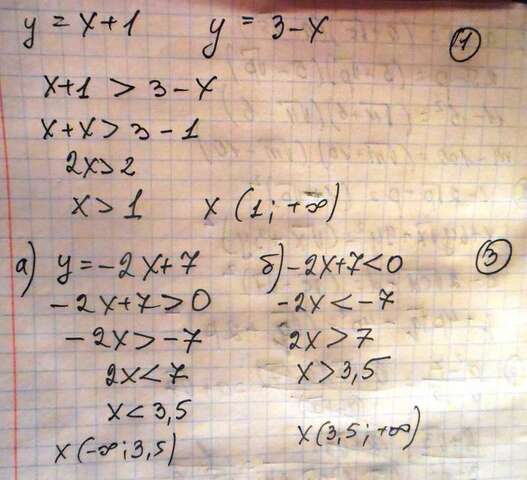 y = x+1    y = 3-x    1
x+1 > 3-x
x+x > 3-1
2x>2
x > 1    x (1; +∞)
а) y = -2x+7    б) -2x+7<0    3
-2x+7>0    -2x < -7
-2x > -7    2x > 7
2x < 7    x > 3,5
x < 3,5
x(-∞; 3,5)    x(3,5; +∞)